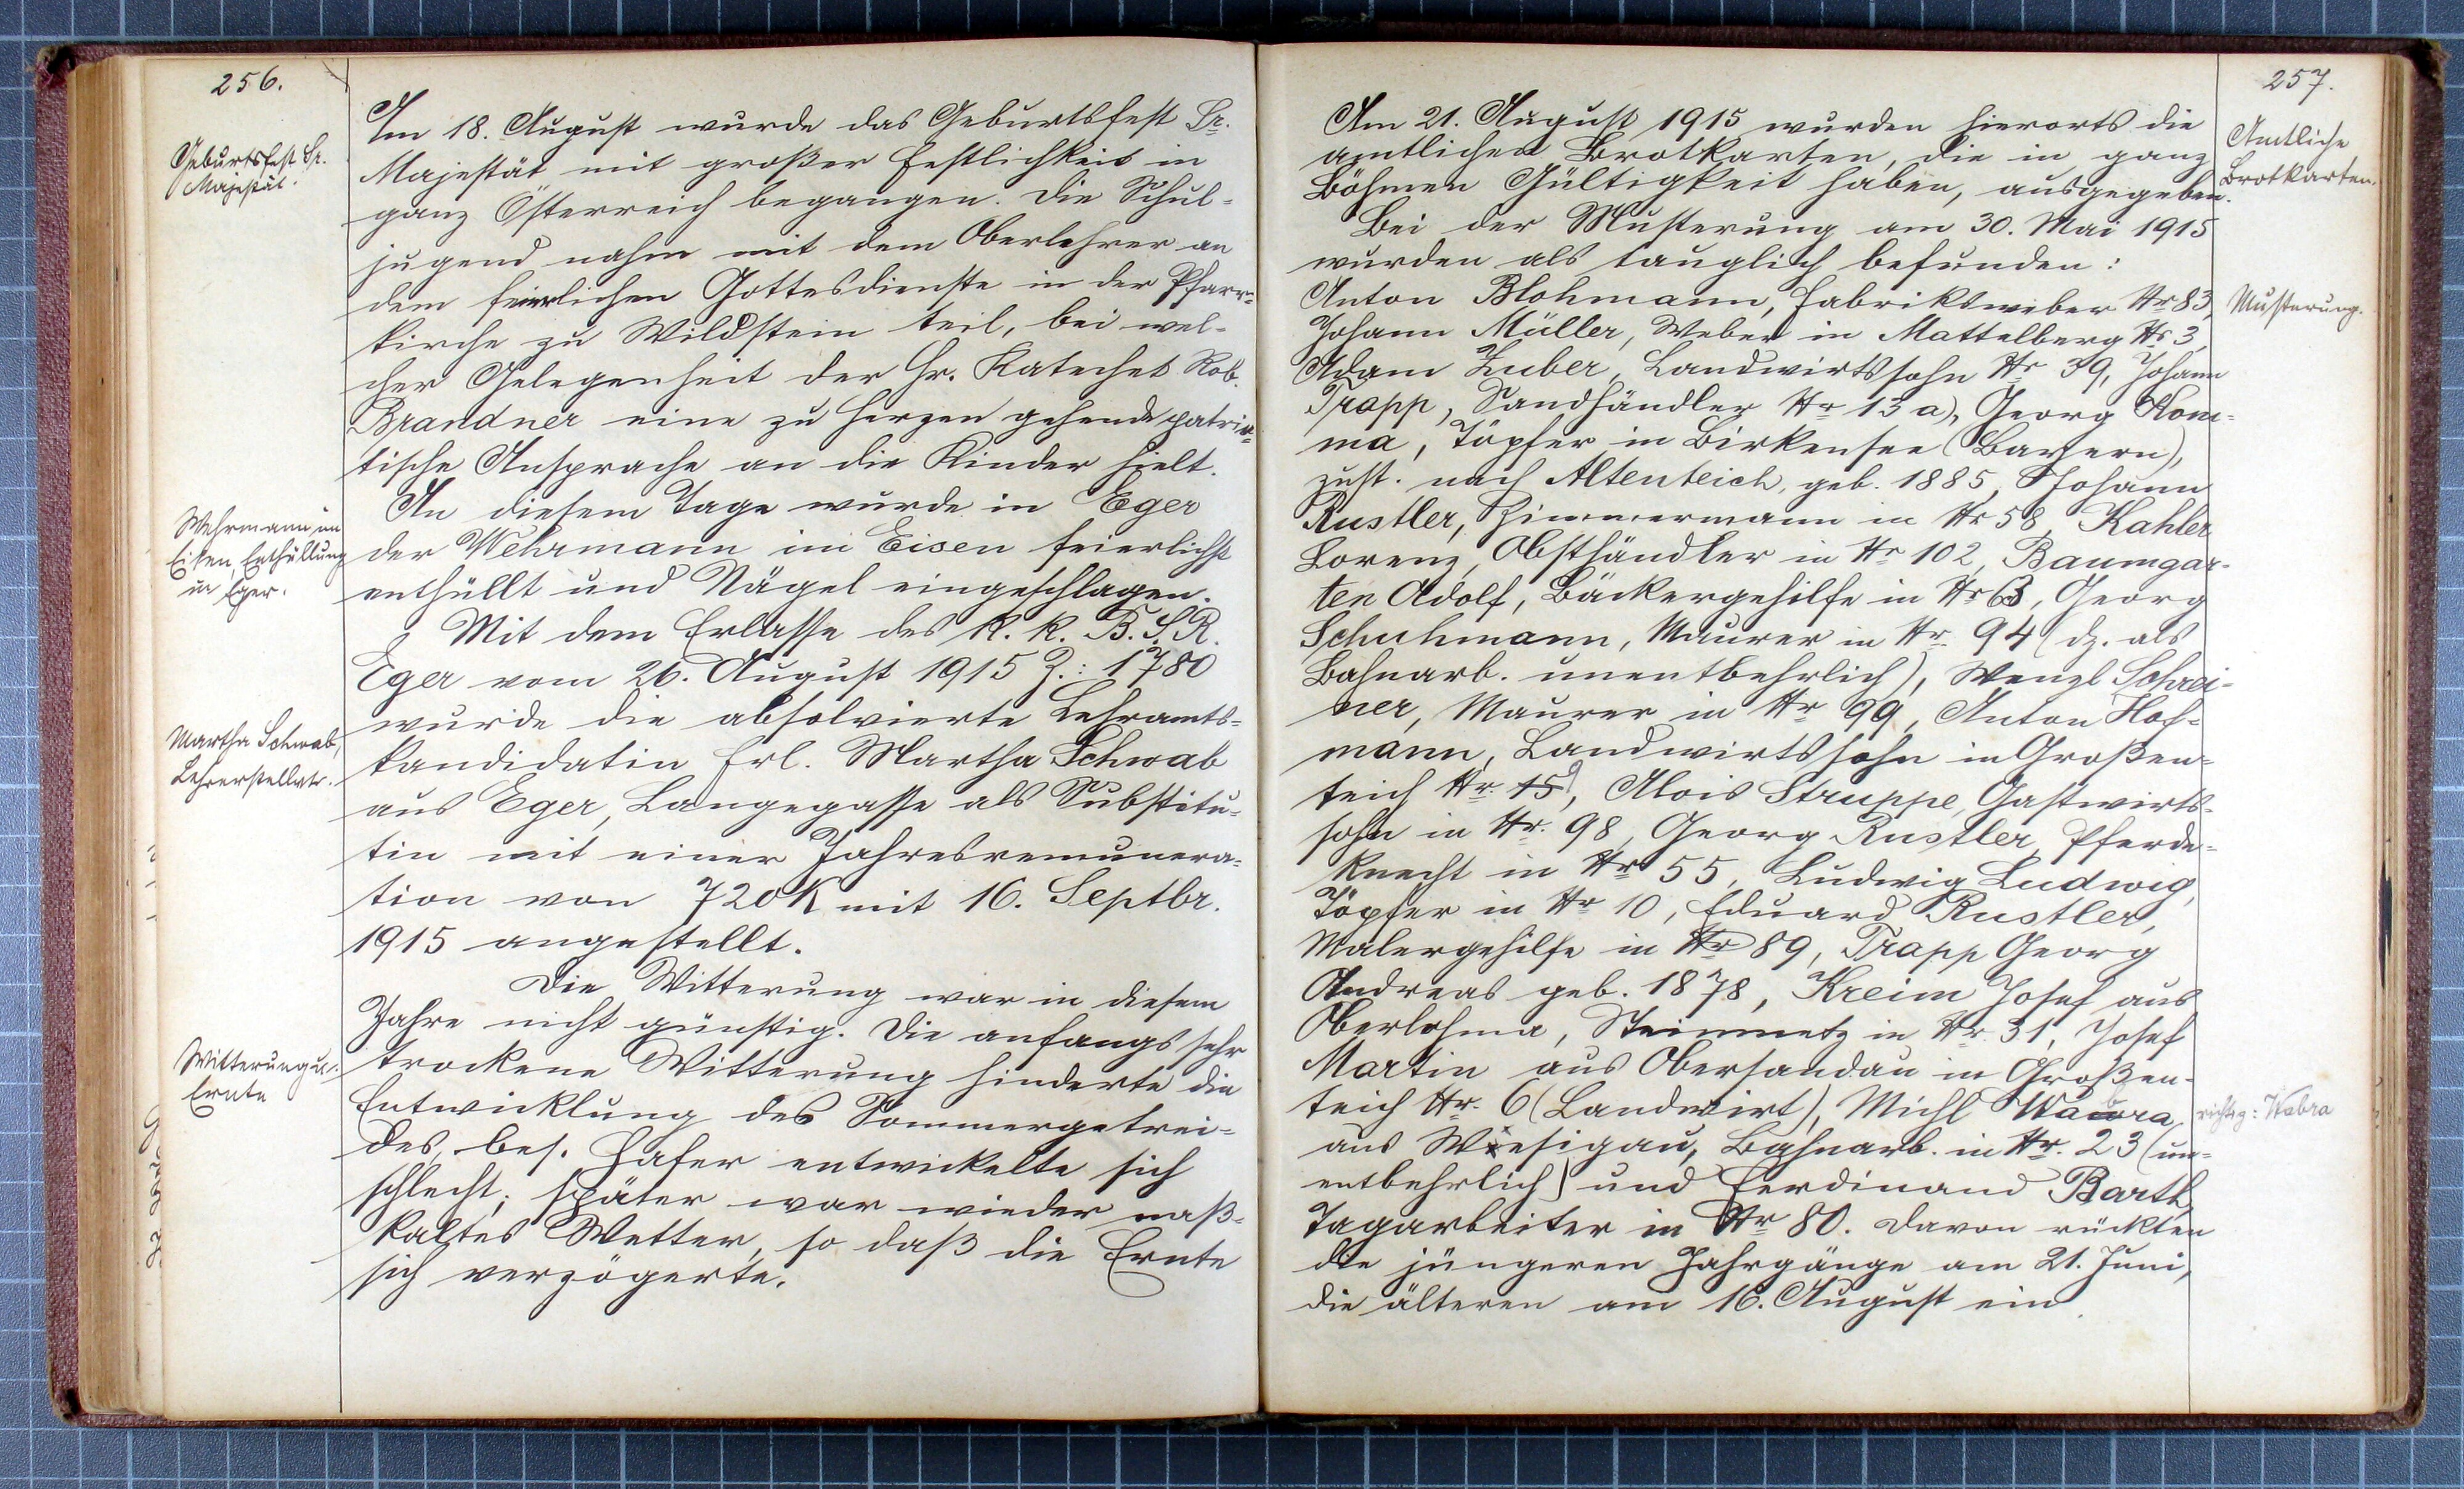 256.
Geburtsfest Sr.
Majestät.
Am 18. August wurde das Geburtsfest Sr.
Majestät mit großer Festlichkeit in
ganz Österreich begangen. Die Schul-
jugend nahm mit dem Oberlehrer an
dem feierlichen Gottesdienste in der Pfarr-
kirche zu Wildstein teil, bei wel-
cher Gelegenheit der Hr. Katechet Rob.
Brandner eine zu Herzen gehende patrio-
tische Ansprache an die Kinder hielt.
Wehrmann in
Eisen, Enthüllung
in Eger.
An diesem Tage wurde in Eger
der Wehrmann in Eisen feierlichst
enthüllt und Nägel eingeschlagen.
Mit dem Erlasse des k. k. B.S.R.
Eger vom 26. August 1915 Z.: 1780
Martha Schwab,
Lehrerstellvtr.
wurde die absolvierte Lehramts-
kandidatin Frl. Martha Schwab
aus Eger, Langegasse als Substitu-
tin mit einer Jahresremunera-
tion von 720K mit 16. Septbr.
1915 angestellt.
Witterung u.
Ernte
Die Witterung war in diesem
Jahre nicht günstig. Die anfangs sehr
trockene Witterung hinderte die
Entwicklung des Sommergetrei-
des, bes. Hafer entwickelte sich
schlecht; später war wieder naß-
kaltes Wetter, so daß die Ernte
sich verzögerte.
257.
Amtliche
Brotkarten.
Am 21. August 1915 wurden hierorts die
amtlichen Brotkarten, die in ganz
Böhmen Gültigkeit haben, ausgegeben.
Musterung.
Bei der Musterung am 30. Mai 1915
wurden als tauglich befunden:
Anton Blohmann, Fabriksweber Nr 83,
Johann Müller, Weber in Mattelberg Nr 3,
Adam Zuber, Landwirtssohn Nr 39, Johann
Trapp, Sandhändler Nr 13 a), Georg Kom-
ma, Töpfer in Birkensee (Bayern),
zust. nach Altenteich, geb. 1885, Johann
Rustler, Zimmermann in Nr 58, Kahler
Lorenz, Obsthändler in Nr 102, Baumgar-
ten Adolf, Bäckergehilfe in Nr 63, Georg
Schuhmann, Maurer in Nr 94 (dz. als
Bahnarb. unentbehrlich), Wenzl Schrei-
ner, Maurer in Nr 99, Anton Hof-
mann, Landwirtssohn in Großen-
teich Nr. 15, Alois Struppe, Gastwirts-
sohn in Nr. 98, Georg Rustler, Pferde-
knecht in Nr 55, Ludwig Ludwig,
Töpfer in Nr 10, Eduard Rustler,
Malergehilfe in Nr 89, Trapp Georg
Andreas geb. 1878, Kreim Josef aus
Oberlohma, Steinmetz in Nr. 31, Josef
Martin aus Obersandau in Großen-
teich Nr. 6 (Landwirt), Michl Wawra
richtig: Wabra
aus Wiesigau, Bahnarb. in Nr. 23 (un-
entbehrlich) und Ferdinand Barth
Tagarbeiter in Nr 80. Davon rückten
die jüngeren Jahrgänge am 21. Juni,
die älteren am 16. August ein.